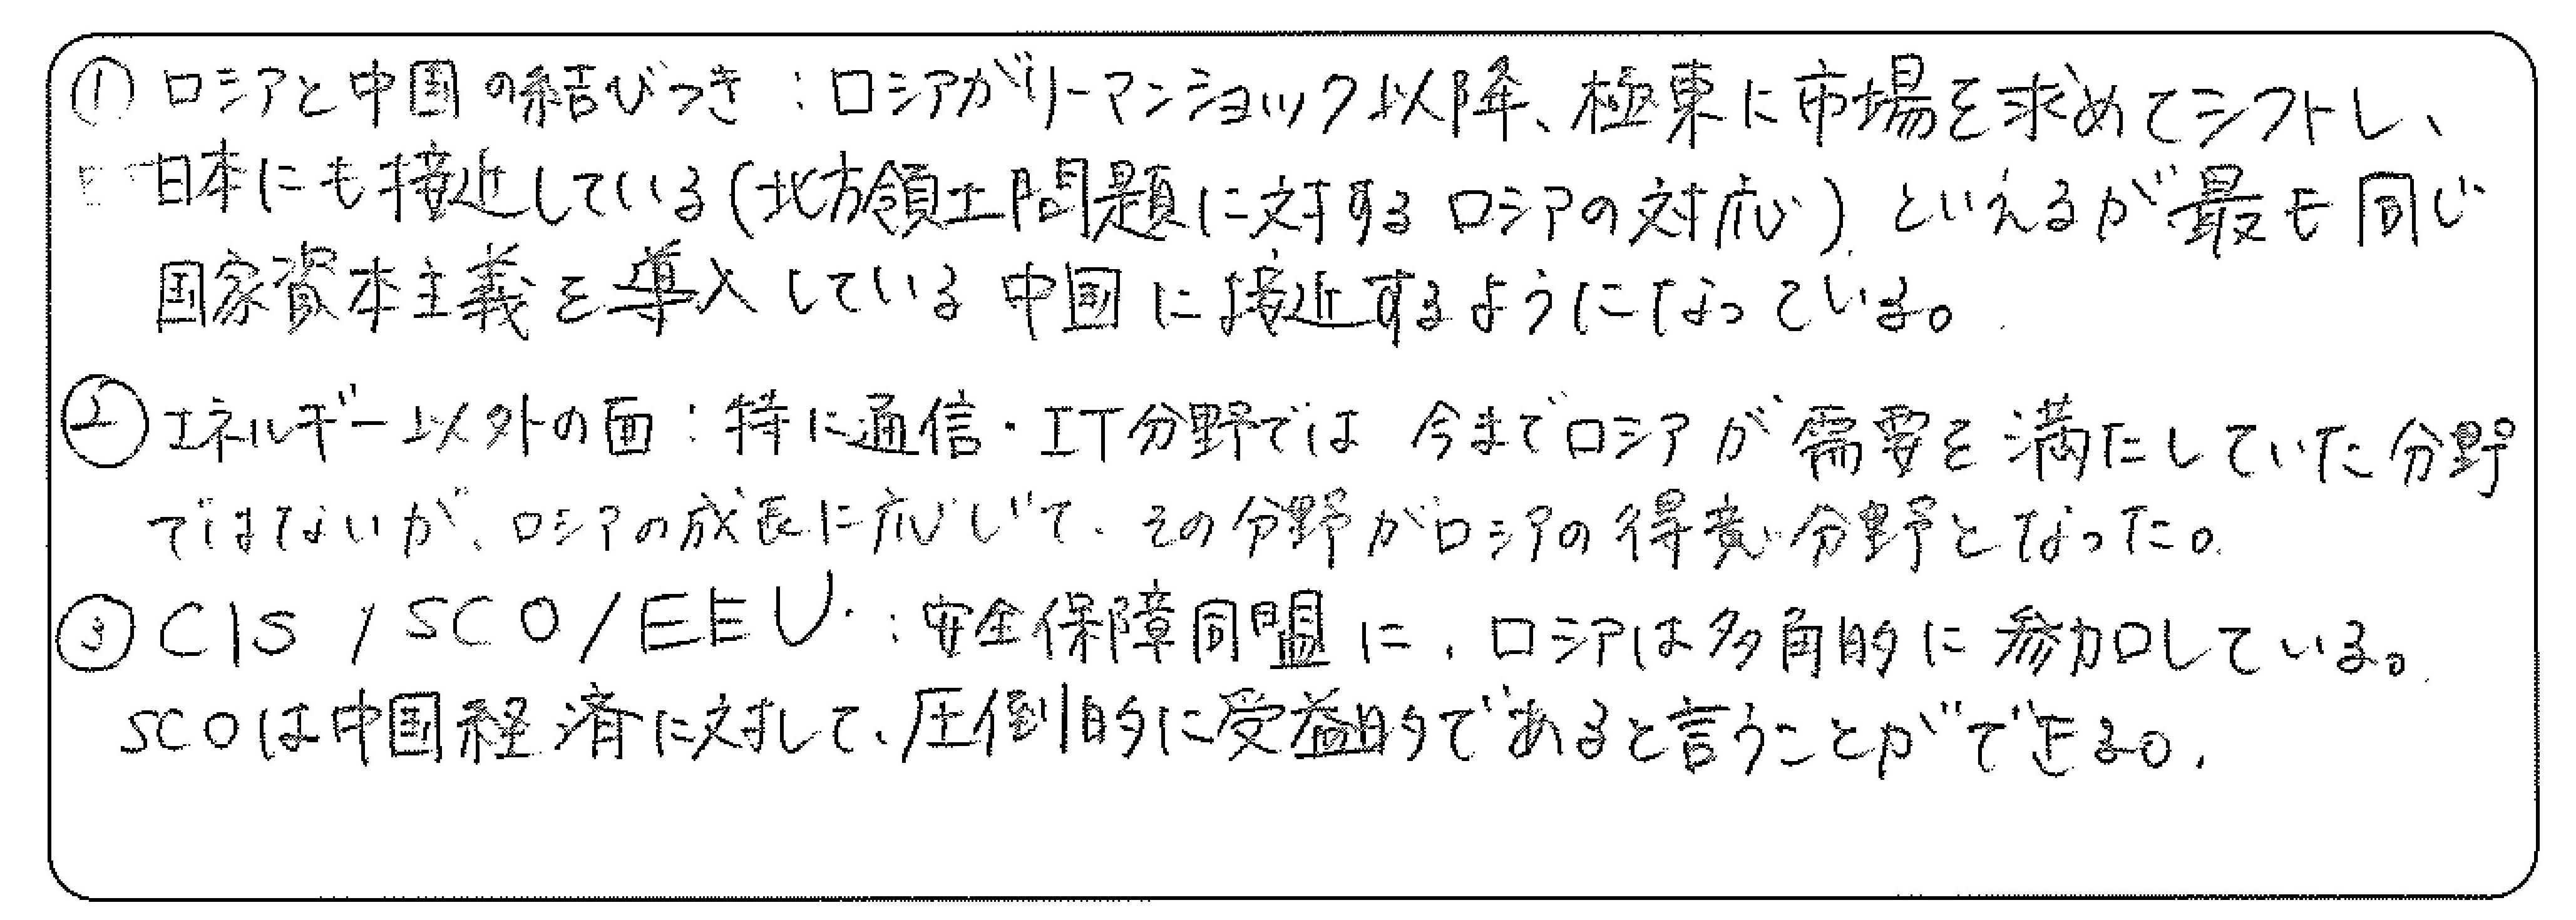 ① ロシアと中国の結びつき:ロシアがリーマンショック以降、極東に市場を求めてシフトし、
日本にも接近している(北方領土問題に対するロシアの対応)といえるが最も同じ
国家資本主義を導入している中国に接近するようになっている。
② エネルギー以外の面:特に通信・IT分野では今までロシアが需要を満たしていた分野
ではないが、ロシアの成長に応じて、その分野がロシアの得意分野となった。
③ CIS/SCO/EEU:安全保障同盟に、ロシアは多角的に参加している。
SCOは中国経済に対して、圧倒的に受益的であると言うことができる。